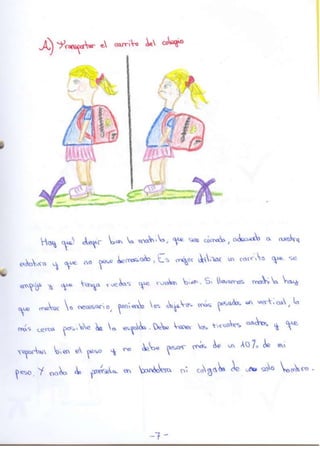 A) Transportar el carrito del colegio
Hay que elegir bien la mochila, que sea cómoda, adecuada a nuestra
estatura y que no pese demasiado. Es mejor utilizar un carrito que se
empuja y que tenga ruedas que rueden bien. Si llevamos mochila hay
que meter lo necesario, poniendo los objetos más pesados en vertical, lo
más cerca posible de la espalda. Debe tener los tirantes anchos y que
repartan bien el peso y no debe pesar más de un 10% de mi
peso. Y nada de ponérsela en bandolera ni colgada de un solo hombro.
-7-